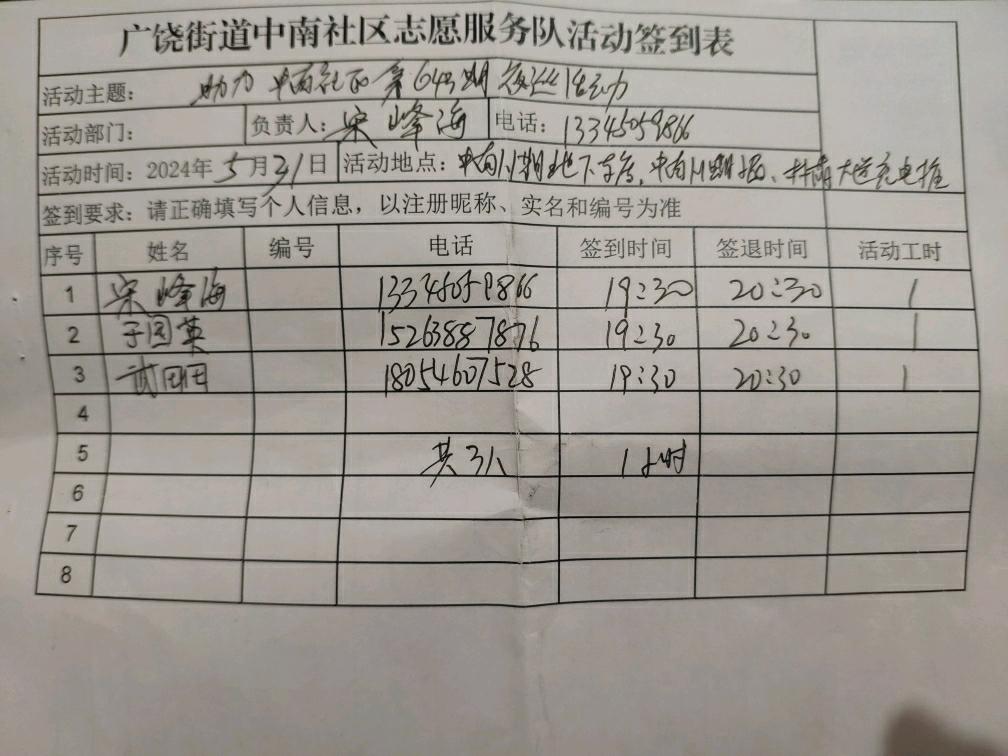 广饶街道中南社区志愿服务队活动签到表
活动主题： 助力中南社区第64期 活动
活动部门： 负责人：宋峰海 电话：13345059866
活动时间：2024年5月31日 活动地点：中南 期地下车库，中南 期 、 大道充电桩
签到要求：请正确填写个人信息，以注册昵称、实名和编号为准
序号 姓名 编号 电话 签到时间 签退时间 活动工时
1 宋峰海 13345059866 19:30 20:30 1
2 于国英 15263887876 19:30 20:30 1
3 武田田 18054607528 19:30 20:30 1
4
5 共3人 1小时
6
7
8